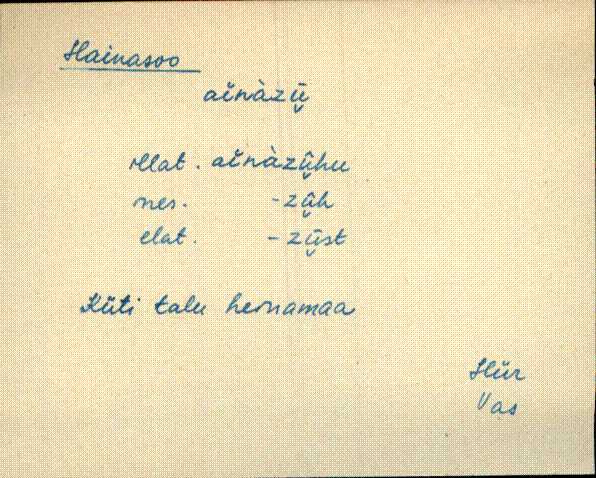 Hainasoo
aǐnàzū̬
illat. aǐnàzū̬hu
ines. -zū̬h
elat. -zū̬st
Küti talu heinamaa
Hür
Vas